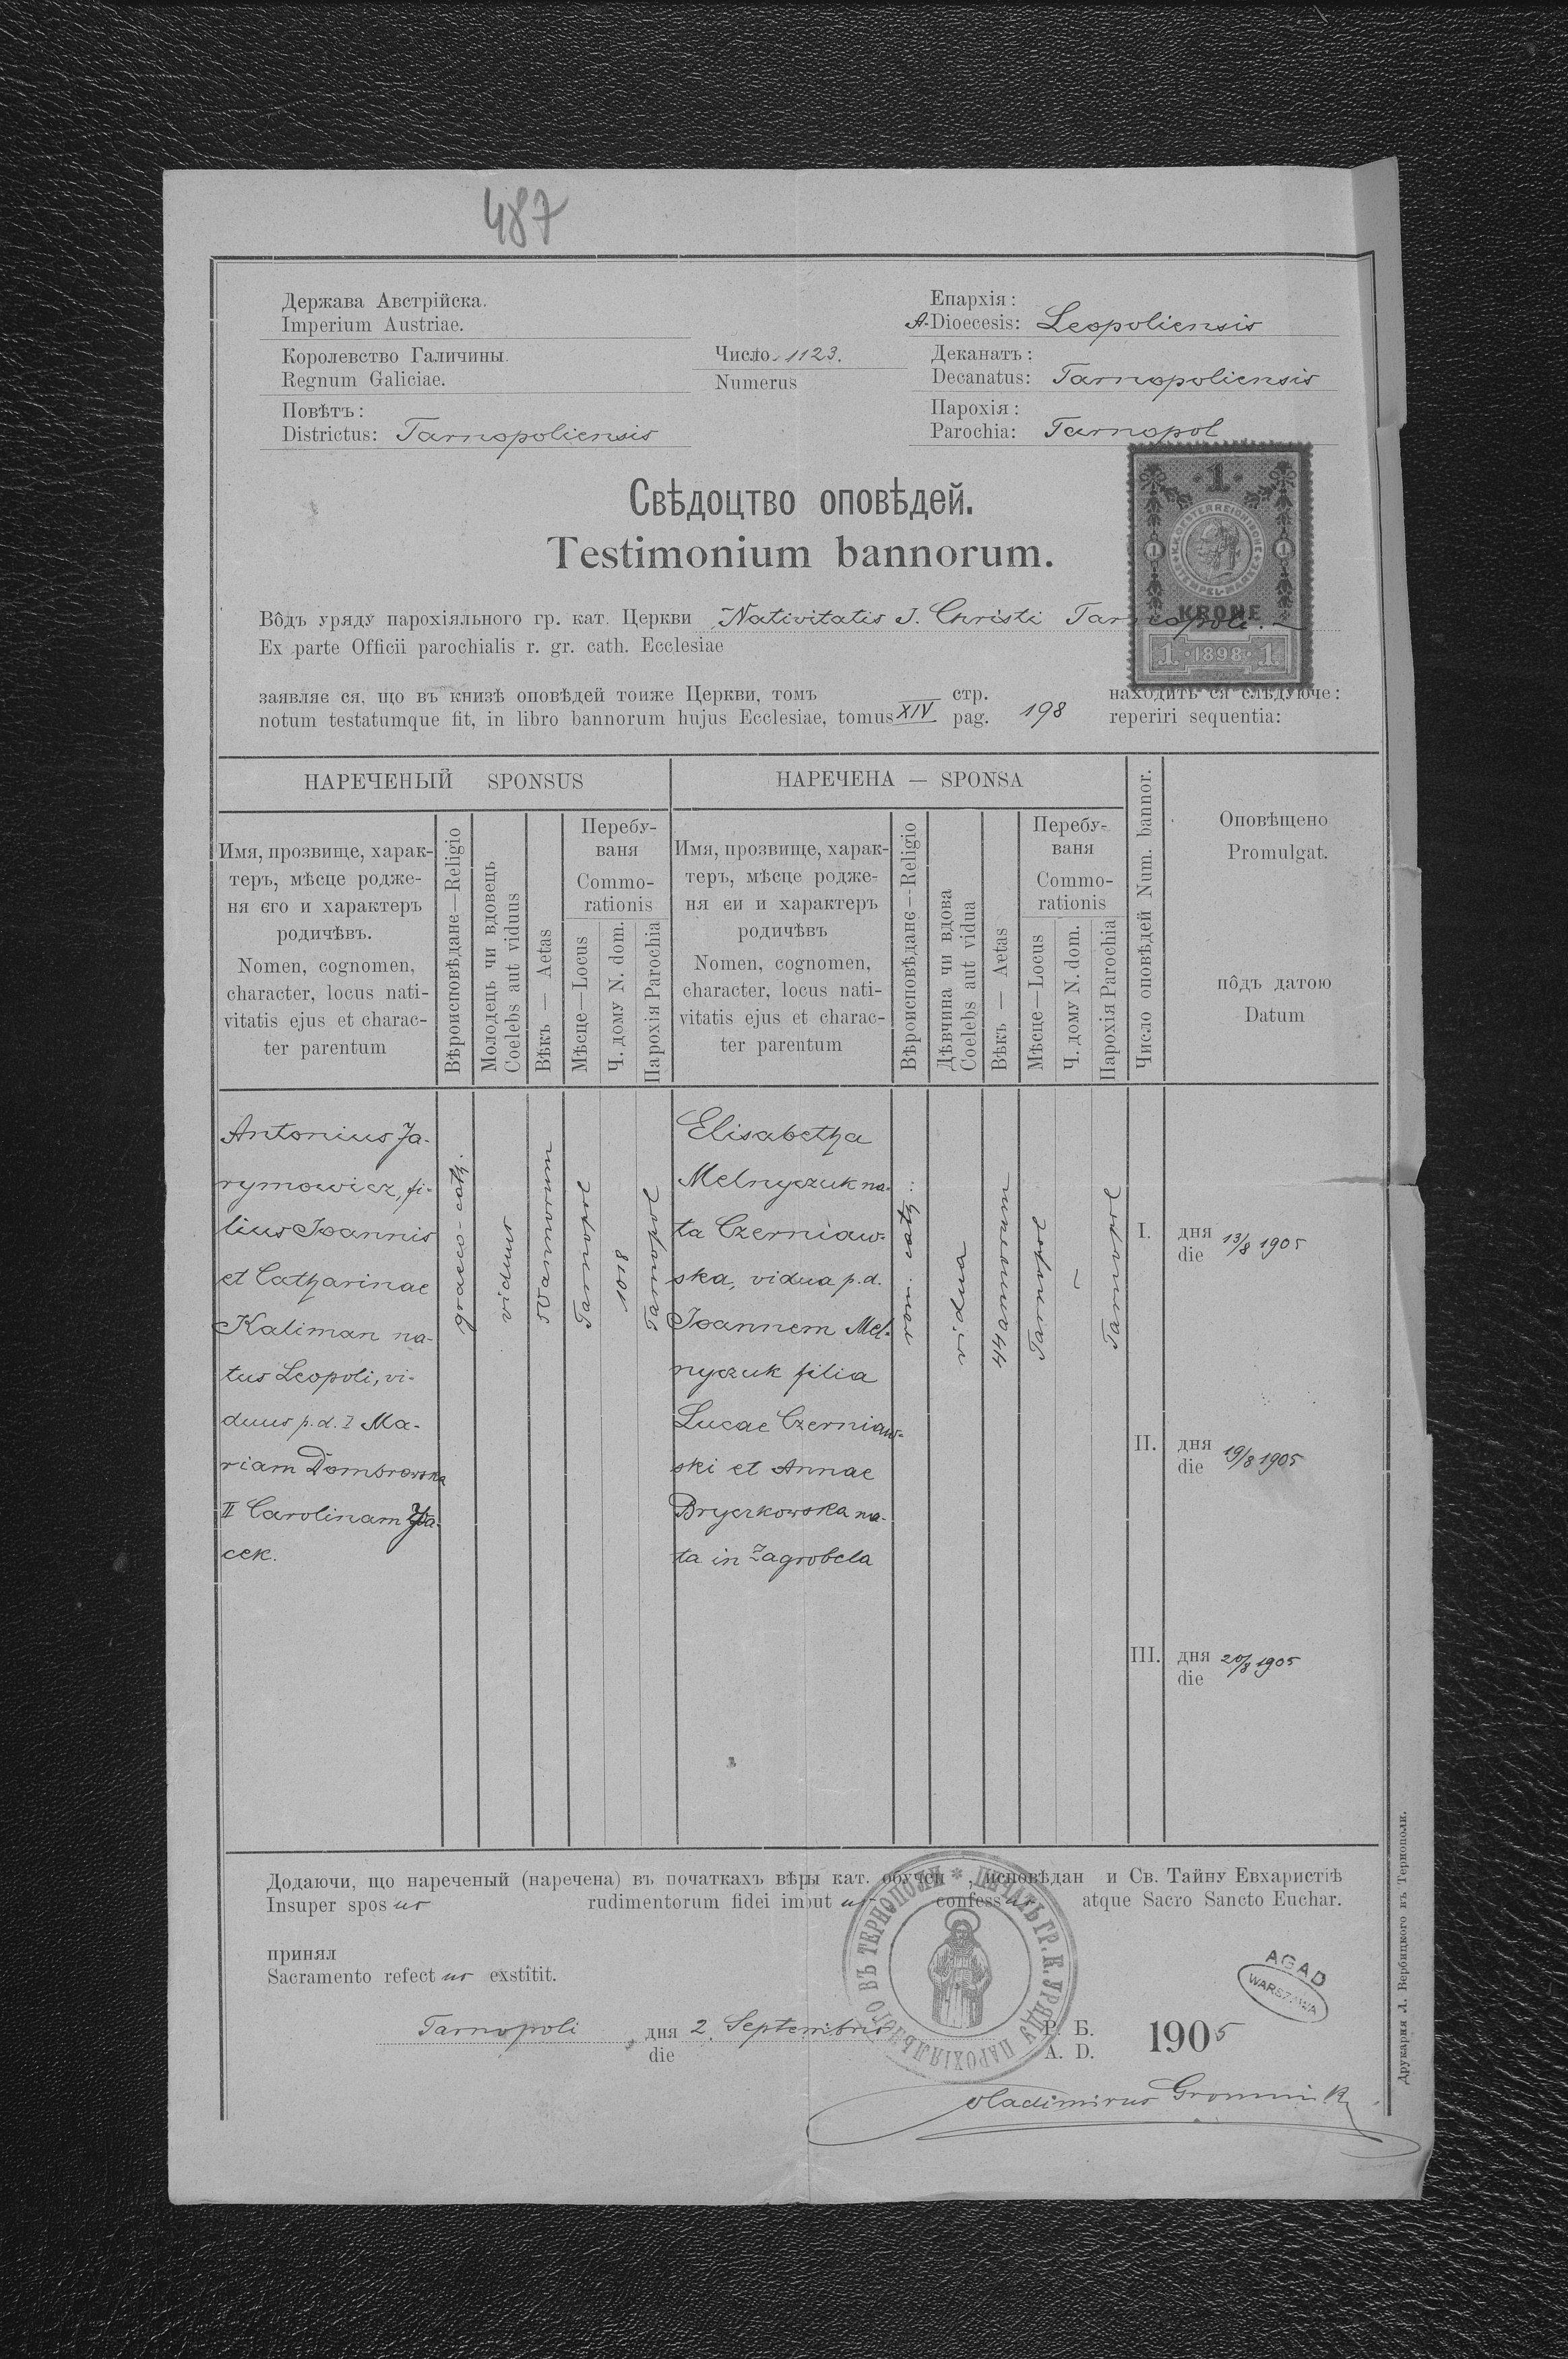 487
Держава Австрійска.
Imperium Austriae.
Королевство Галичины.
Regnum Galiciae.
Повѣтъ:
Districtus: Tarnopoliensis
Число 1123.
Numerus
Епархія:
A-Dioecesis: Leopoliensis
Деканатъ:
Decanatus: Tarnopoliensis
Парохія:
Parochia: Tarnopol
1
K.K. OESTERREICHISCHE STEMPEL-MARKE
1 1
KRONE
1 · 1898 · 1
Свѣдоцтво оповѣдей.
Testimonium bannorum.
Вôдъ уряду парохіяльного гр. кат. Церкви Nativitatis J. Christi Tarnopoli.
Ex parte Officii parochialis r. gr. cath. Ecclesiae
заявляє ся, що въ книзѣ оповѣдей тоиже Церкви, томъ стр. находить ся слѣдуюче:
notum testatumque fit, in libro bannorum hujus Ecclesiae, tomus XIV pag. 198 reperiri sequentia:
НАРЕЧЕНЫЙ SPONSUS
Имя, прозвище, харак-
теръ, мѣсце родже-
ня єго и характеръ
родичѣвъ.
Nomen, cognomen,
character, locus nati-
vitatis ejus et charac-
ter parentum
Вѣроисповѣданє—Religio
Молодець чи вдовець
Coelebs aut viduus
Вѣкъ — Aetas
Перебу-
ваня
Commo-
rationis
Мѣсце—Locus
Ч. дому N. dom.
Парохія Parochia
НАРЕЧЕНА — SPONSA
Имя, прозвище, харак-
теръ, мѣсце родже-
ня еи и характеръ
родичѣвъ
Nomen, cognomen,
character, locus nati-
vitatis ejus et charac-
ter parentum
Вѣроисповѣданє—Religio
Дѣвчина чи вдова
Coelebs aut vidua
Вѣкъ — Aetas
Перебу-
ваня
Commo-
rationis
Мѣсце—Locus
Ч. дому N. dom.
Парохія Parochia
Число оповѣдей Num. bannor.
Оповѣщено
Promulgat.
пôдъ датою
Datum
Antonius Ja-
rymowicz, fi-
lius Joannis
et Catharinae
Kaliman na-
tus Leopoli, vi-
duus p. d. I Ma-
riam Dombrowska
II Carolinam
cek.
graeco-cath.
viduus
50 annorum
Tarnopol
1018
Tarnopol
Elisabetha
Melnyczuk na-
ta Czerniaw-
ska, vidua p. d.
Joannem Mel-
nyczuk filia
Lucae Czerniaw-
ski et Annae
Bryczkowska na-
ta in Zagrobela
rom. cath.:
vidua
44 annorum
Tarnopol
–
Tarnopol
I. дня
die 13/8 1905
II. дня
die 19/8 1905
III. дня
die 20/8 1905
Додаючи, що нареченый (наречена) въ початкахъ вѣры кат. обучен , исповѣдан и Св. Тайну Евхаристіѣ
Insuper spos us rudimentorum fidei imbut us confess us atque Sacro Sancto Euchar.
принял
Sacramento refect us exstitit.
ПЕЧАТЬ ГР. К. УРЯДУ ПАРОХІЯЛЬНОГО ВЪ ТЕРНОПОЛИ *
AGAD
WARSZAWA
Tarnopoli, дня 2. Septembris Р. Б. 1905
die A. D.
Vladimirus Gromnicki
Друкарня Л. Вербицкого въ Тернополи.